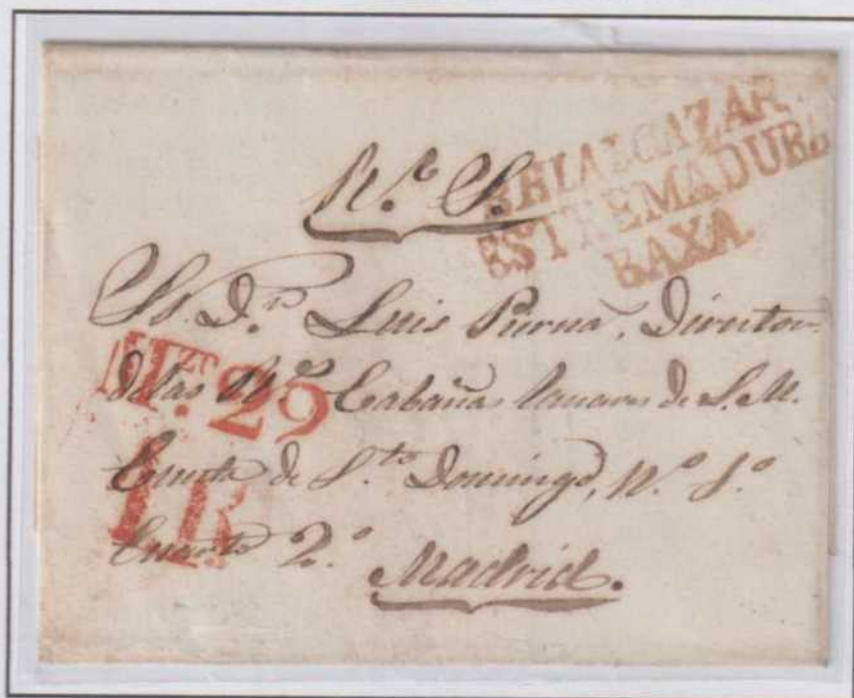 R.l S.
BELALCAZAR
ESTREMADURA
BAXA
Sr. D.n Luis Pierna, Director
de las R.s Cabañas lanares de S. M.
Cuesta de S.to Domingo, N.o 8.o
Cuarto 2.o
Madrid.
Mzo. 29
1R